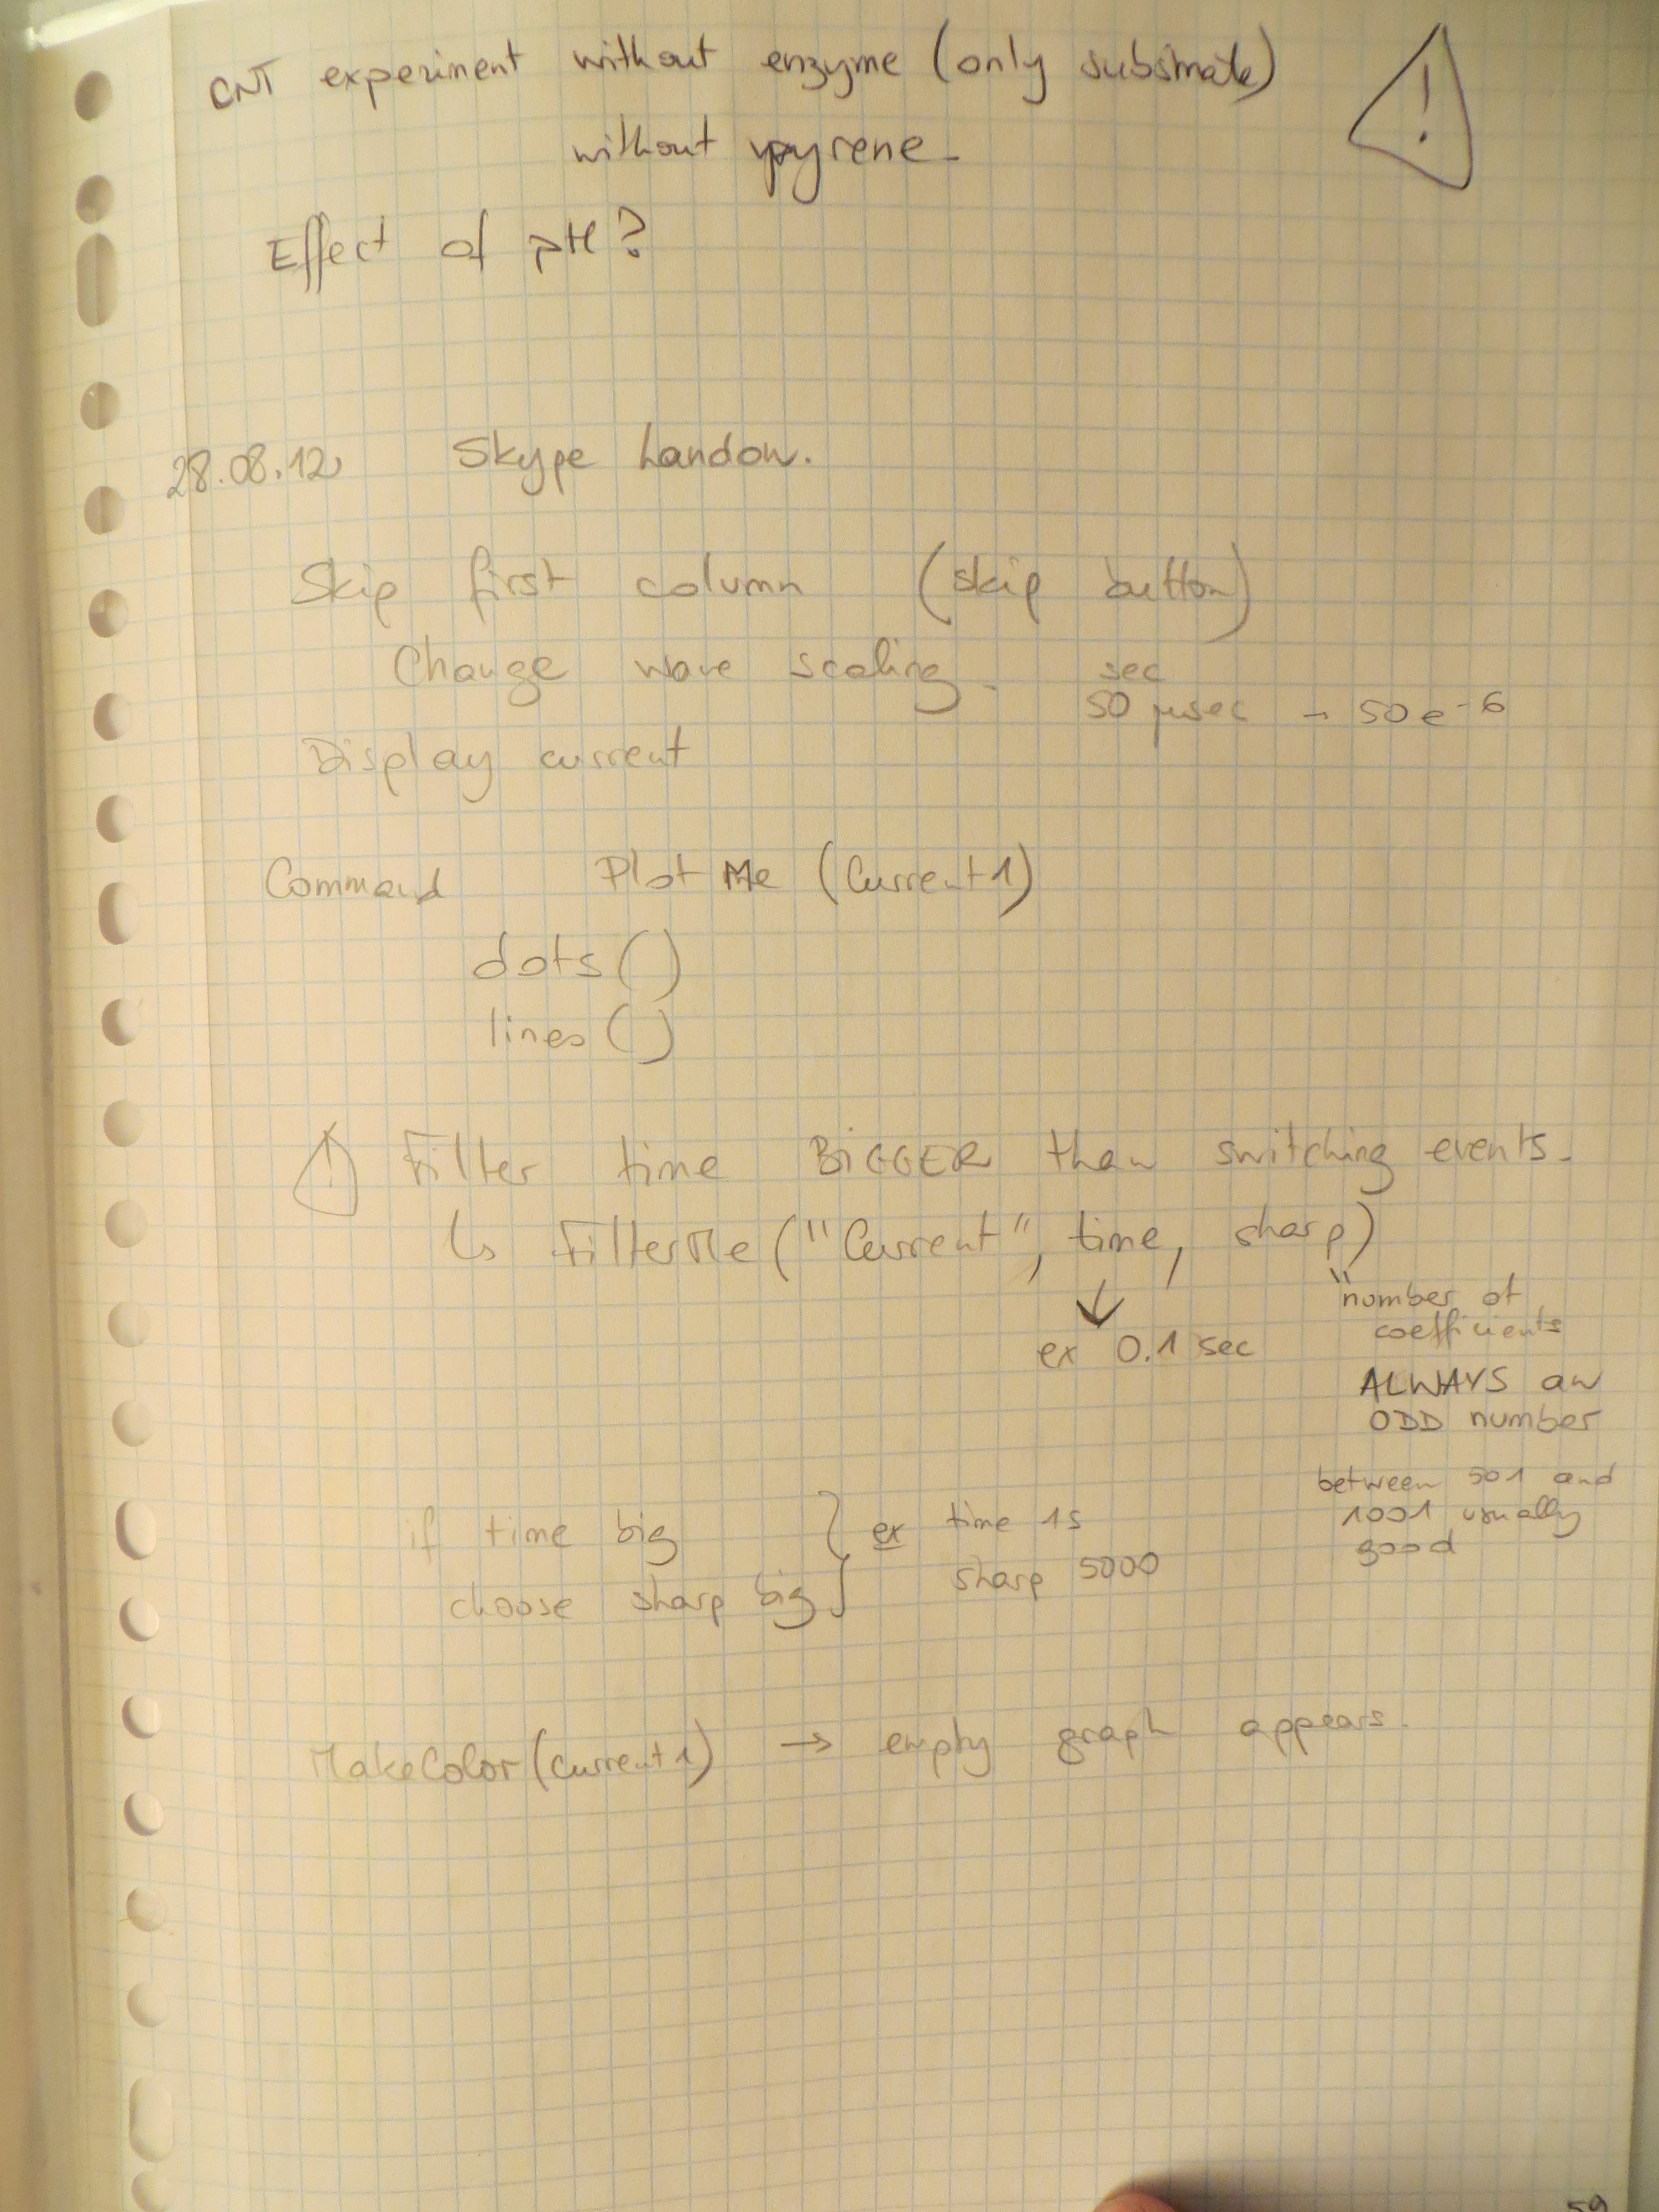 CNT experiment without enzyme (only substrate)
without pyrene -
!
Effect of pH?
28.08.12 Skype Landon.
Skip first column (skip button)
Change wave scaling - sec
50 μsec → 50 e-6
Display current
Command Plot Me (Current 1)
dots ()
lines ()
! Filter time BIGGER than switching events -
↳ FilterMe ("Current", time, sharp)
↓
ex 0.1 sec
"number of
coefficients
ALWAYS an
ODD number
between 501 and
1001 usually
good
if time big } ex time 1s
choose sharp big } sharp 5000
MakeColor (Current 1) → empty graph appears.
59